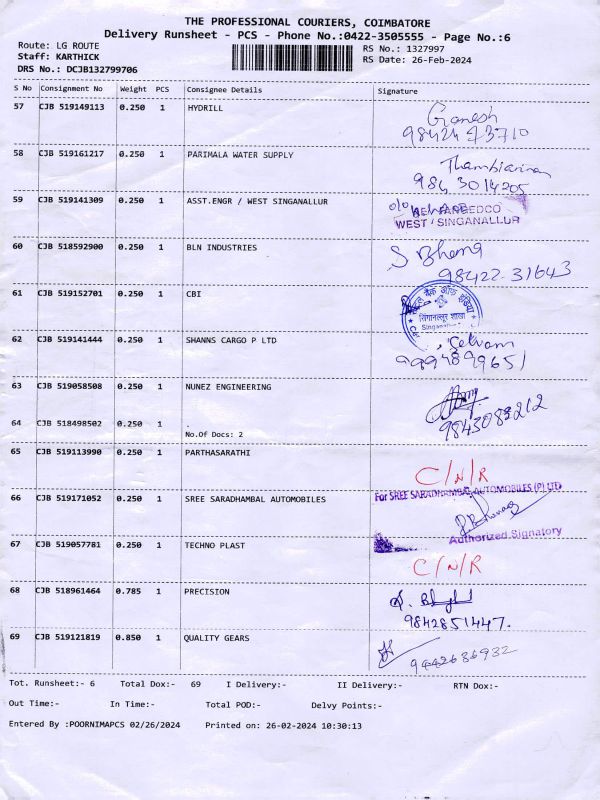 THE PROFESSIONAL COURIERS, COIMBATORE
Delivery Runsheet - PCS - Phone No.:0422-3505555 - Page No.:6
Route: LG ROUTE RS No.: 1327997
Staff: KARTHICK RS Date: 26-Feb-2024
DRS No.: DCJB132799706
S No Consignment No Weight PCS Consignee Details Signature
57 CJB 519149113 0.250 1 HYDRILL Ganesh
58 CJB 519161217 0.250 1 PARIMALA WATER SUPPLY
98430 14205
59 CJB 519141309 0.250 1 ASST.ENGR / WEST SINGANALLUR
WEST / SINGANALLUR
60 CJB 518592900 0.250 1 BLN INDUSTRIES S Bhema
98422 31643
61 CJB 519152701 0.250 1 CBI
सिंगानल्लूर शाखा
62 CJB 519141444 0.250 1 SHANNS CARGO P LTD Selvam
63 CJB 519058508 0.250 1 NUNEZ ENGINEERING
64 CJB 518498502 0.250 1 . 9843083212
No.Of Docs: 2
65 CJB 519113990 0.250 1 PARTHASARATHI C/N/R
For SREE SARADHAMBAL AUTOMOBILES (P) LTD
66 CJB 519171052 0.250 1 SREE SARADHAMBAL AUTOMOBILES
Authorized Signatory
67 CJB 519057781 0.250 1 TECHNO PLAST C/N/R
68 CJB 518961464 0.785 1 PRECISION
9842851447.
69 CJB 519121819 0.850 1 QUALITY GEARS 9442636932
Tot. Runsheet:- 6 Total Dox:- 69 I Delivery:- II Delivery:- RTN Dox:-
Out Time:- In Time:- Total POD:- Delvy Points:-
Entered By :POORNIMAPCS 02/26/2024 Printed on: 26-02-2024 10:30:13